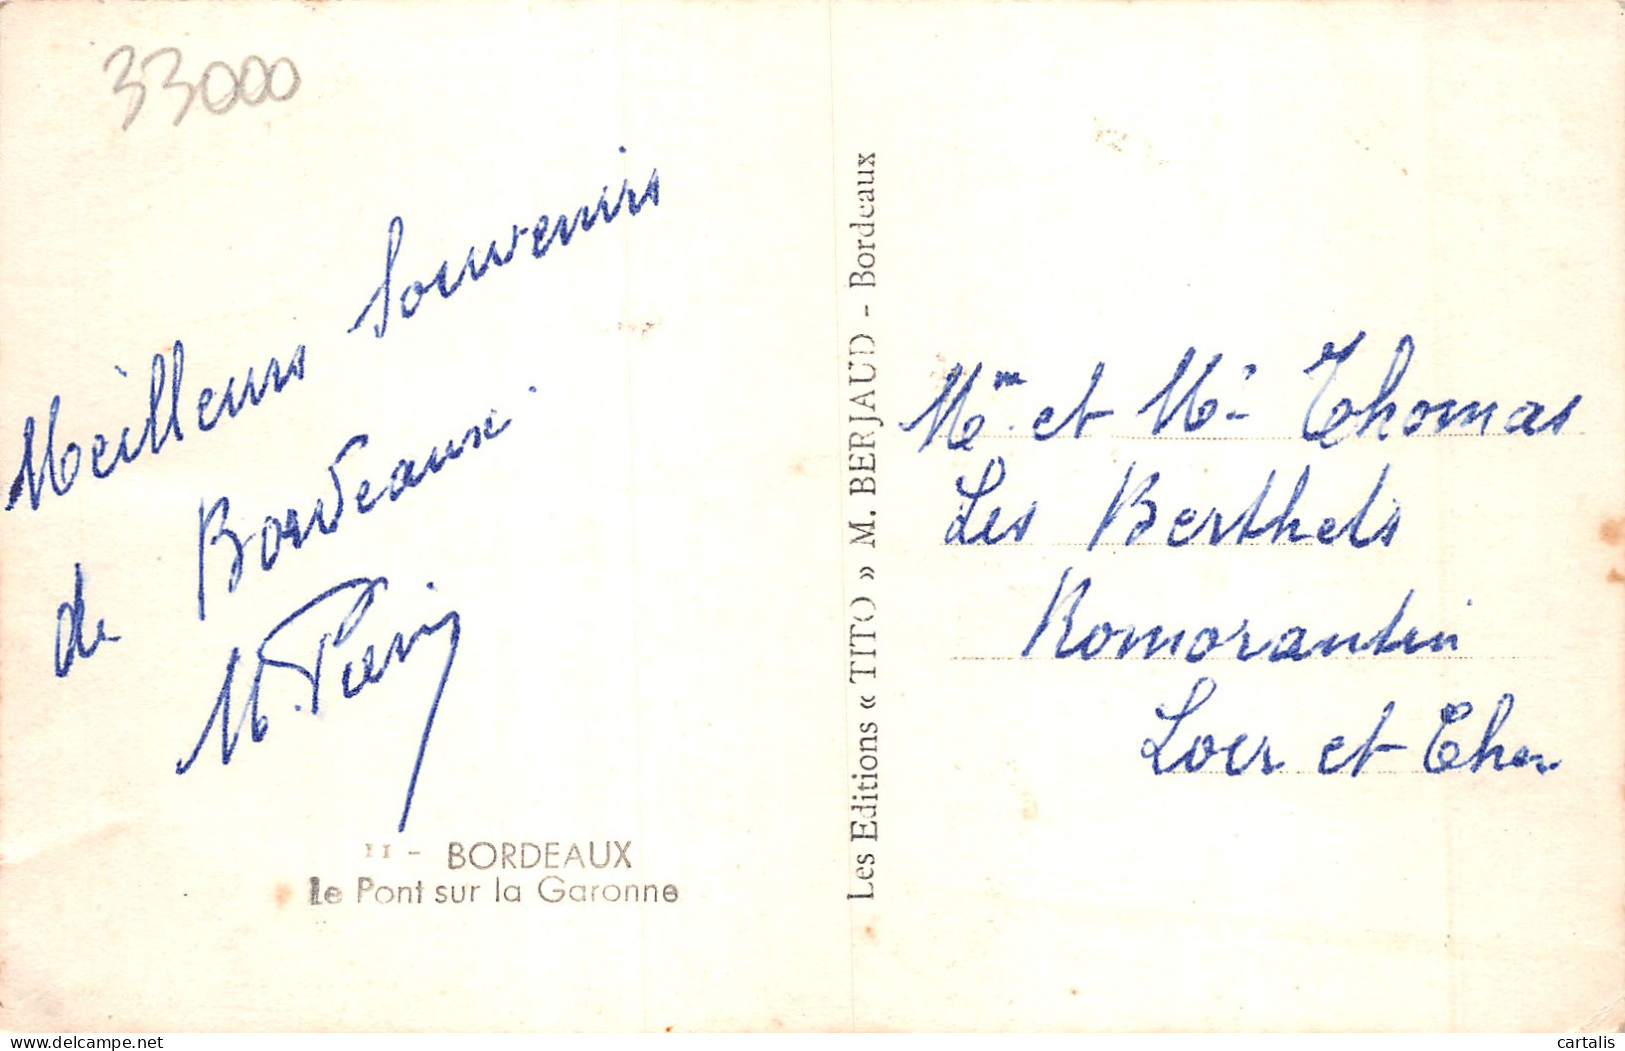 33000
Meilleurs Souvenirs
de Bordeaux.
M.
11 - BORDEAUX
Le Pont sur la Garonne
Les Editions « TITO » M. BERJAUD - Bordeaux
Mme et Mr Thomas
Les Berthels
Romorantin
Loir et Cher
cartalis